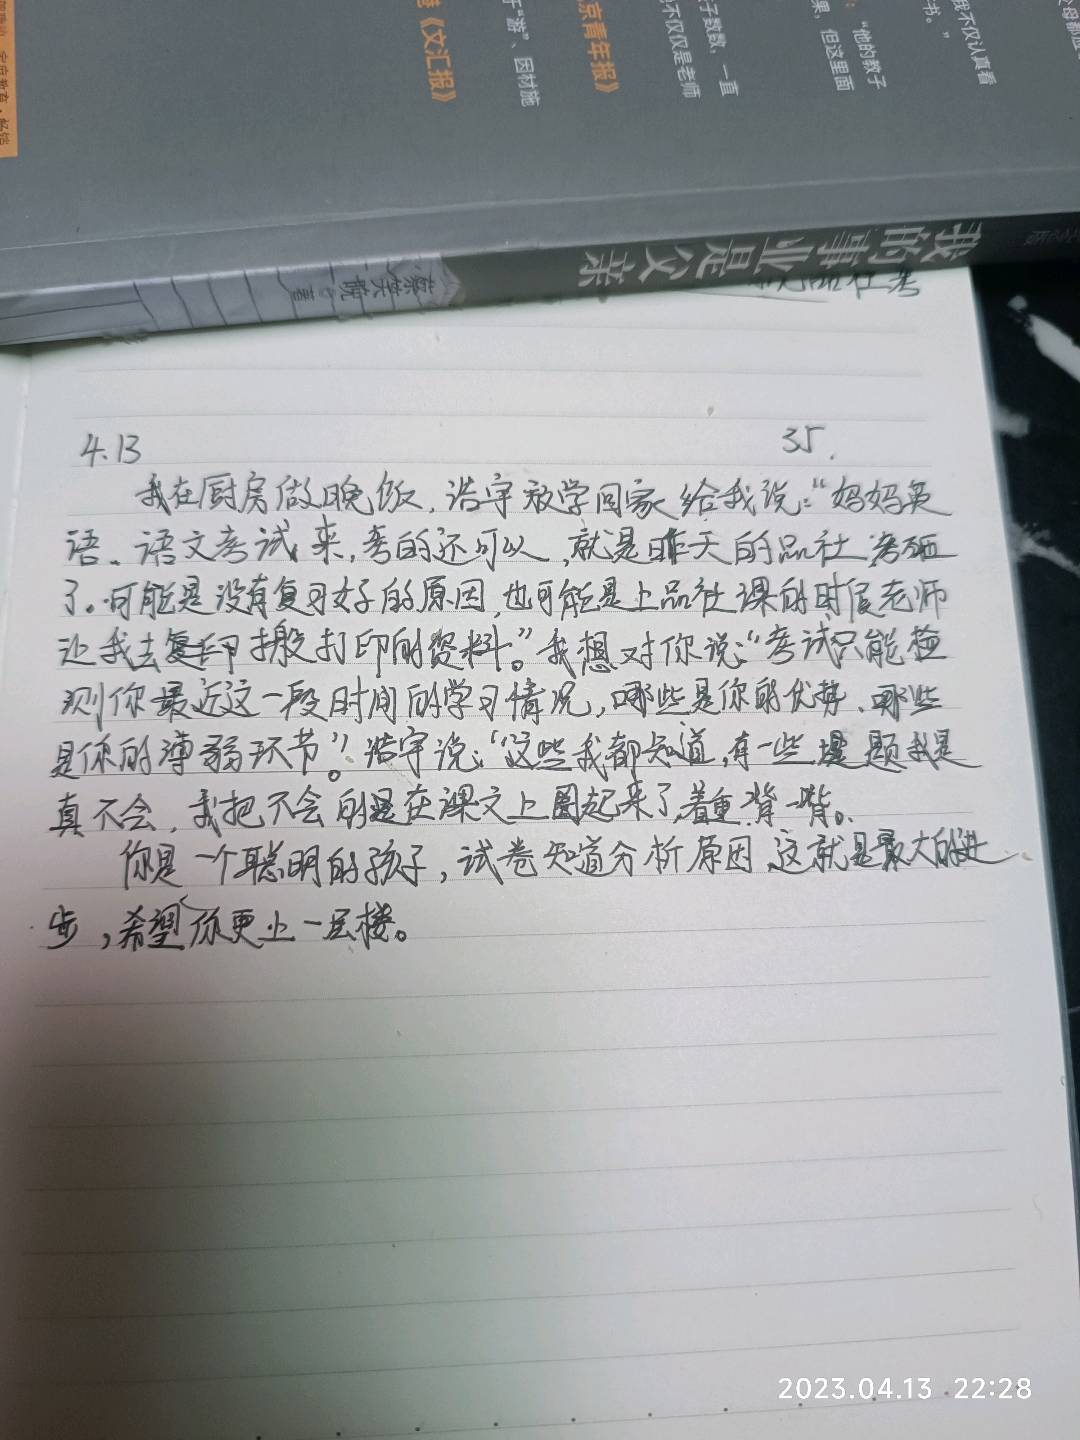 《文汇报》
于“游”、因材施
京青年报》
子数数，一直
不仅仅是老师
：“他的教子
果，但这里面
我不仅认真看
书。”
父母都应
我的事业是父亲
蔡笑晚 著
4.13
35.
我在厨房做晚饭，浩宇放学回家给我说：“妈妈英
语、语文考试来，考的还可以，就是昨天的品社考砸
了。可能是没有复习好的原因，也可能是上品社课的时候老师
让我去复印搬打印的资料。”我想对你说：“考试只能检
测你最近这一段时间的学习情况，哪些是你的优势、哪些
是你的薄弱环节”。浩宇说：“这些我都知道，有一些题我是
真不会，我把不会的是在课文上圈起来了，着重背一背。
你是一个聪明的孩子，试卷知道分析原因，这就是最大的进
步，希望你更上一层楼。
2023.04.13 22:28